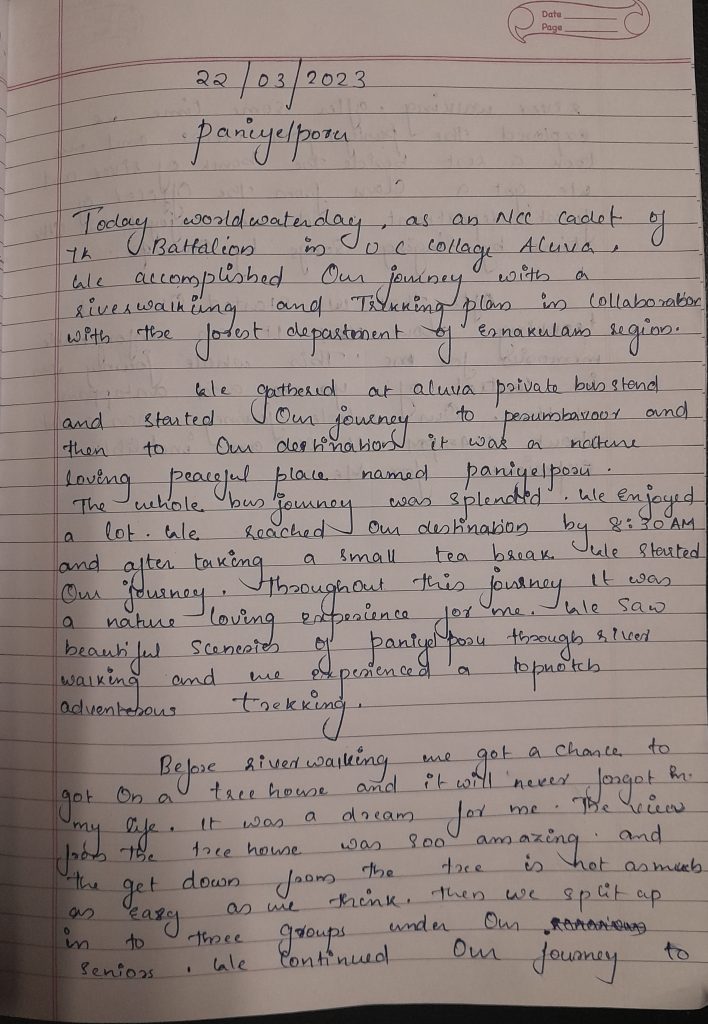 Date
Page
22/03/2023
paniyelporu
Today worldwaterday, as an Ncc cadet of
7k Battalion in U C collage Aluva,
We accomplished Our journey with a
riverwalking and Trekking plan in collaboration
with the forest department of Ernakulam region.
We gathered at aluva private bus stend
and started Our journey to perumbavoor and
then to Our destination it was a nature
loving peaceful place named paniyelporu.
The whole bus journey was splendid. We Enjoyed
a lot. We reached Our destination by 8:30 AM
and after taking a small tea break We started
Our journey. Throughout this journey it was
a nature loving experience for me. We saw
beautiful sceneries of paniyelporu through river
walking and we experienced a topnotch
adventerous trekking.
Before riverwalking we got a chance to
got On a tree house and it will never forgot in
my life. it was a dream for me. The view
from the tree house was soo amazing. and
the get down from the tree is not asmuch
as easy as we think. then we split up
in to three groups under Our
seniors. We Continued Our journey to